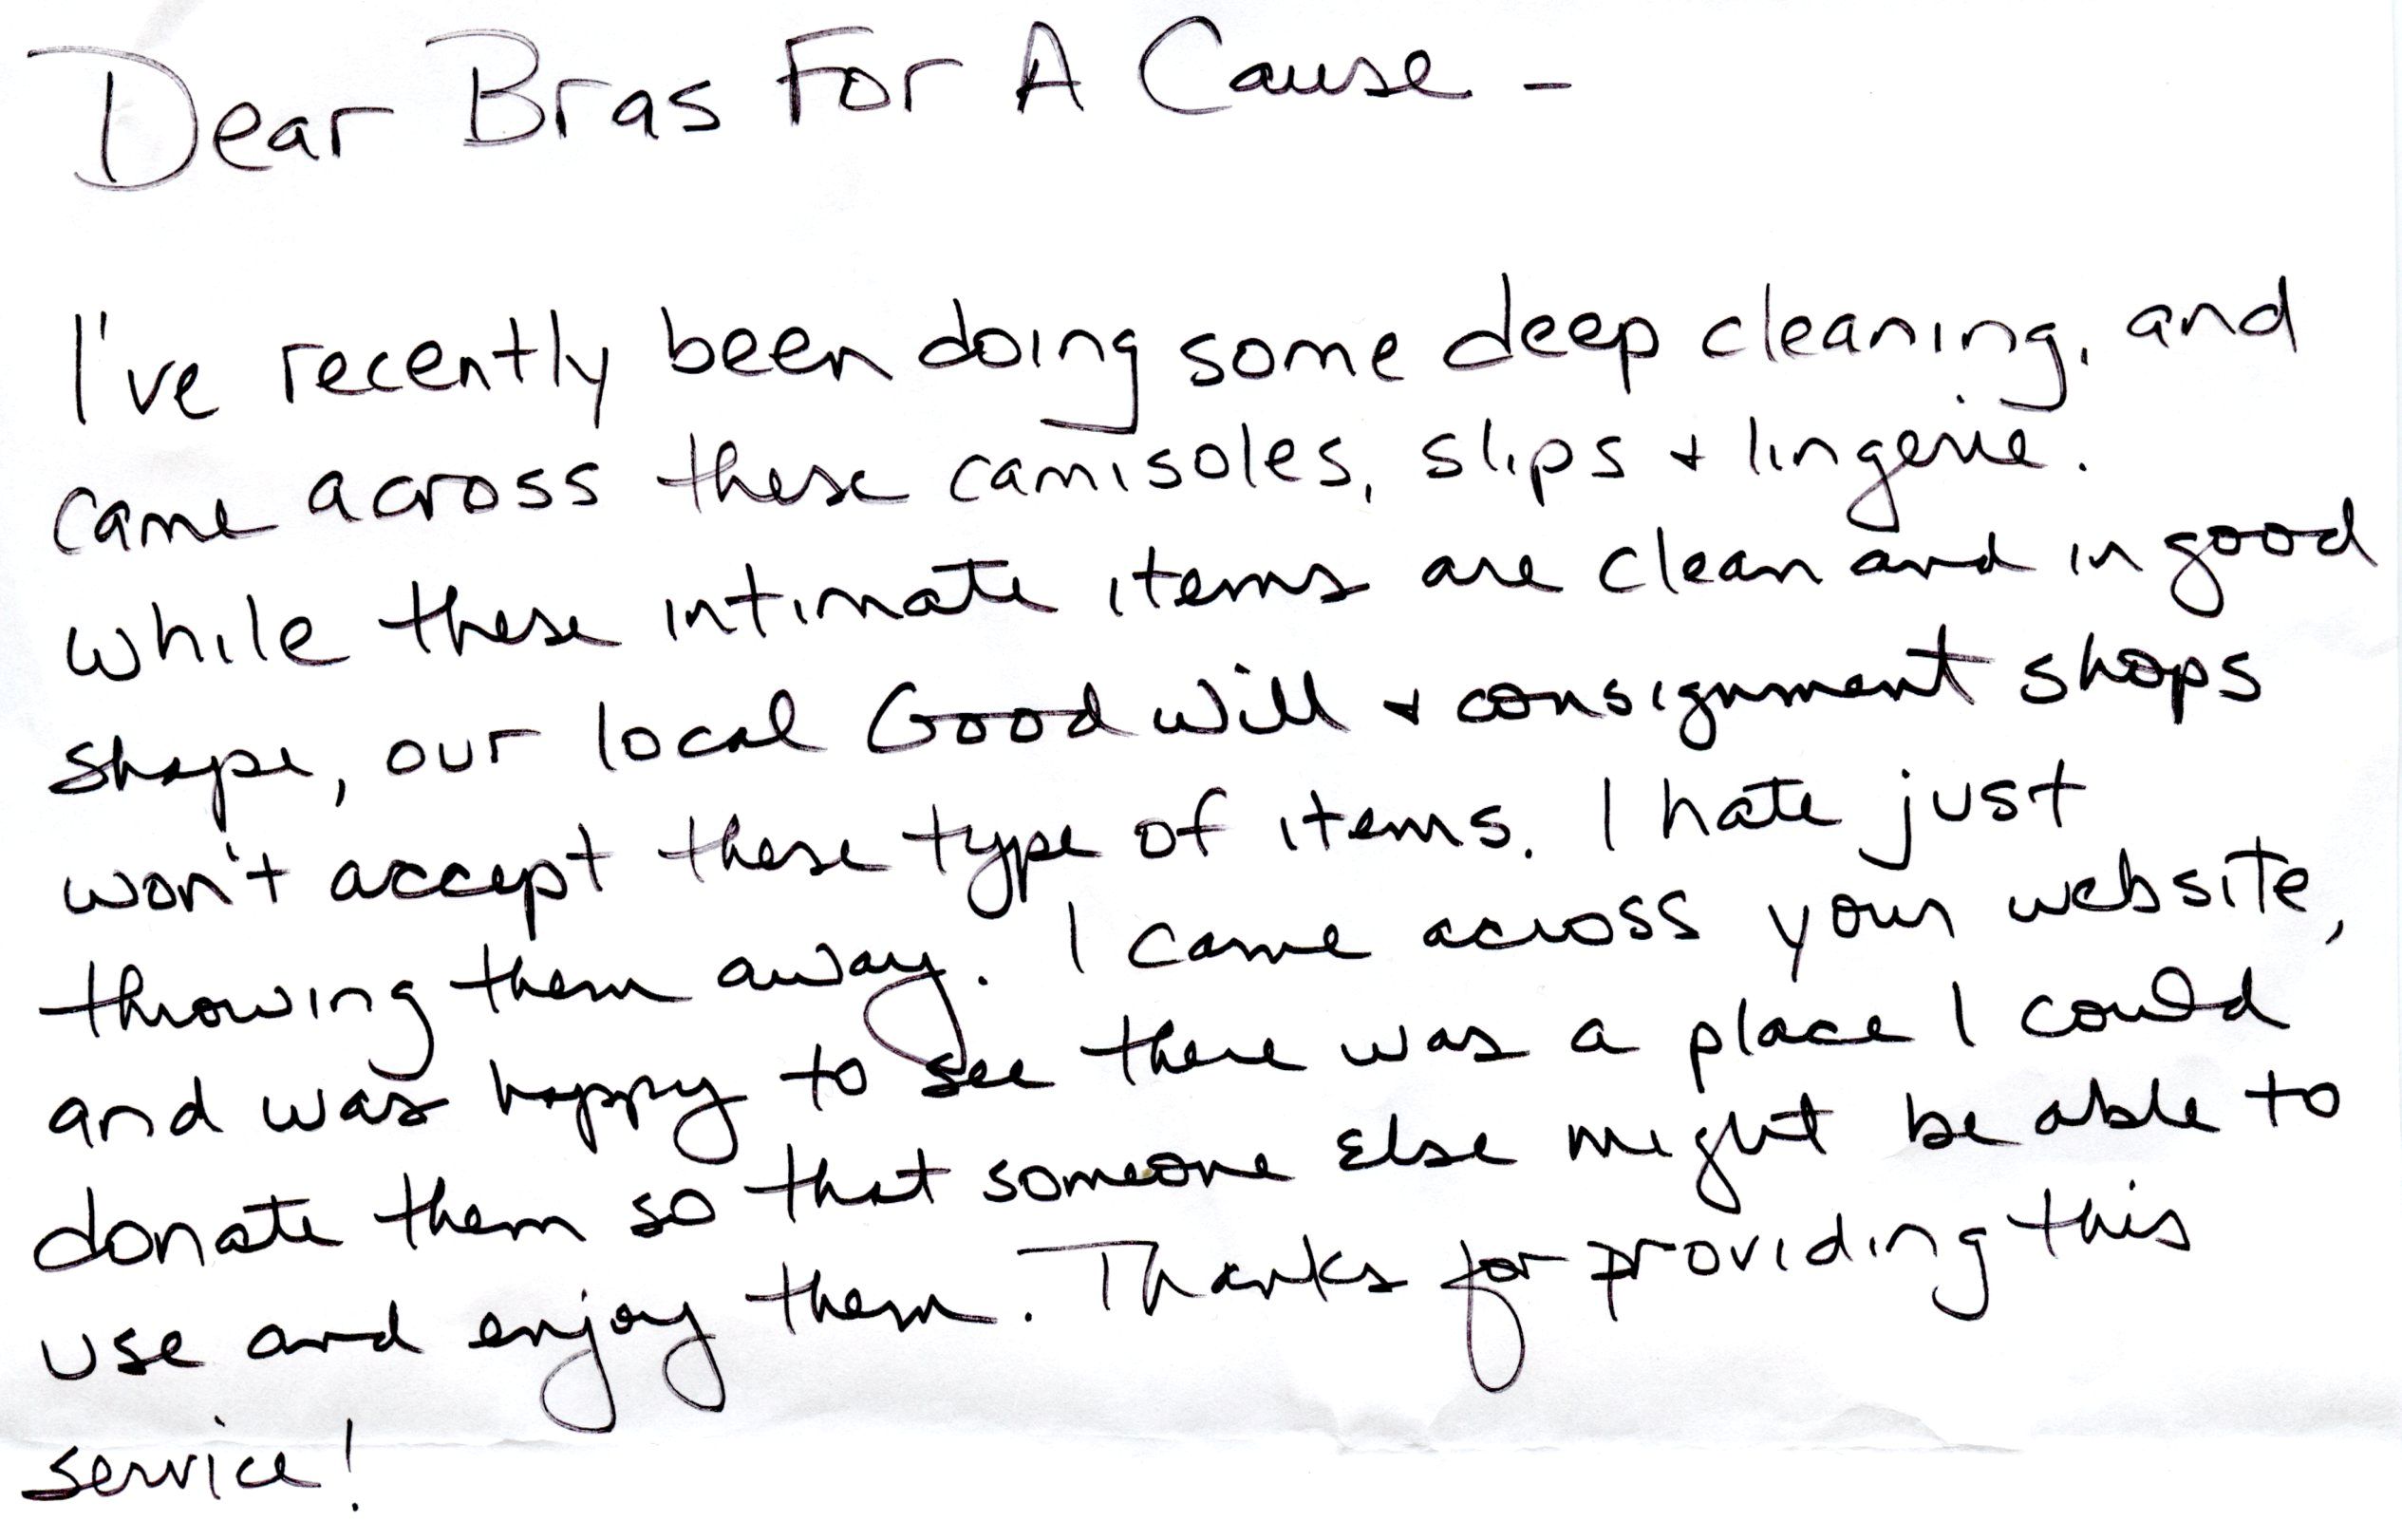 Dear Bras For A Cause -
I've recently been doing some deep cleaning, and
came across these camisoles, slips + lingerie.
While these intimate items are clean and in good
shape, our local Good Will + consignment shops
won't accept these type of items. I hate just
throwing them away. I came across your website,
and was happy to see there was a place I could
donate them so that someone else might be able to
use and enjoy them. Thanks for providing this
service!